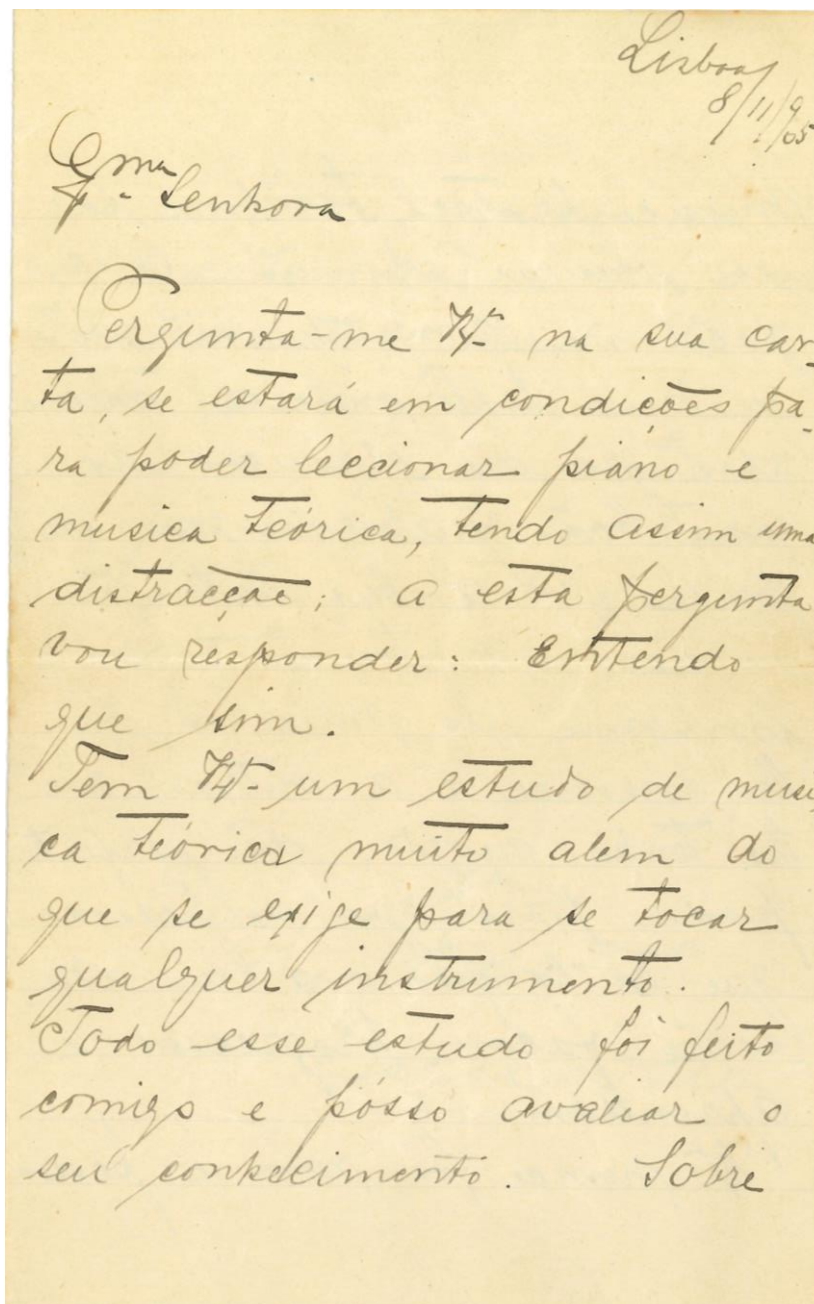 Lisboa
8/11/905
Exma
Sra Senhora
Pergunta-me V. na sua car-
ta, se estará em condições pa-
ra poder leccionar piano e
musica teórica, tendo assim uma
distracção; a esta pergunta
vou responder: Entendo
que sim.
Tem V. um estudo de musi-
ca teórica muito alem do
que se exige para se tocar
qualquer instrumento.
Todo esse estudo foi feito
comigo e pósso avaliar o
seu conhecimento. Sobre